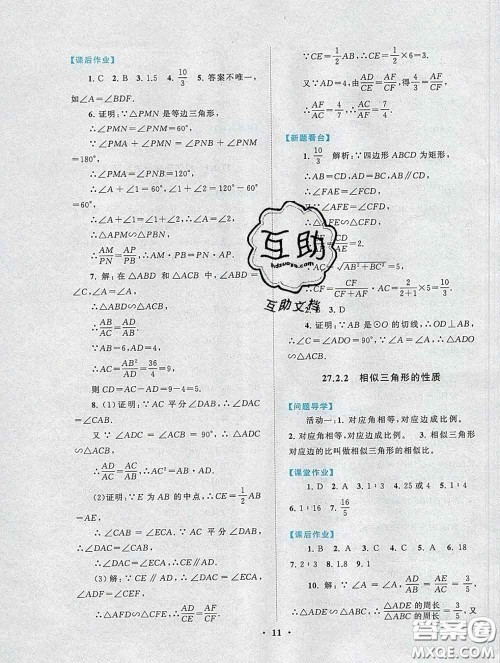 【课后作业】
1. C 2. B 3. 1.5 4. 10/3 5. 答案不唯一,
如∠A=∠BDF.
6. 证明:∵△PMN是等边三角形,
∴∠PMN=∠PNM=60°,
∴∠PMA+∠PMN=∠PNM+∠PNB
=180°,
∴∠A+∠1=60°,∠1+∠2=120°-60°
=60°,
∴∠A+∠1=∠1+∠2,∴∠A=∠2,
∴△APM∽
∴AM/PN=AP/PB,∴AM·PB=PN·AP.
7. 解:在△ABD和△ACB中,∠ABD=∠C,
∠A=∠A,
∴△ABD∽△ACB,
∴AB/AC=AD/AB,
∴AC=AB²/AD=36/4=9,
则CD=AC-AD=9-4=5.
8. (1)证明:∵AC平分∠DAB,∴∠DAC
=∠CAB.
又∵∠ADC=∠ACB=90°,∴△ADC∽
△ACB,∴AD/AC=AC/AB,∴AC²=AB·AD.
(2)证明:∵E为AB的中点,∴CE=1/2AB
=AE,
∴∠EAC=∠ECA.∵AC平分∠DAB,
∴∠CAD=∠CAB,
∴∠CAD=∠ECA,∴CE∥AD.
(3)解:∵CE∥AD,∴∠DAF=∠ECF,
∠ADF=∠CEF,
∴△AFD∽△CFE,∴AD/CE=AF/CF.
∵CE=1/2AB,∴CE=1/2×6=3.
又∵AD=4,由AD/CE=AF/CF,得4/3=AF/CF,
∴AF/AC=4/7,∴AC/AF=7/4.
【新题看台】
1. 10/3 解析:∵四边形ABCD为矩形,
∴AB=CD,AD=BC,AB∥CD,
∴∠FAE=∠FCD,
又∵∠AFE=∠CFD,
CF/AF=CD/AE=2.
∵AC=√AB²+BC²=5,
∴CF=CF/CF+AF·AC=2/2+1×5=10/3.
2. 3. D
4. 证明:∵AB是⊙O的切线,∴OD⊥AB,
∴∠C=∠BDO=90°.
∵∠B=∠B,∴△OBD∽△ABC.
27.2.2 相似三角形的性质
【问题导学】
活动一:1. 对应角相等,对应边成比例.
2. 对应角相等,对应边成比例. 3. 相似三角形
对应边的比叫做相似三角形的相似比.
【课堂作业】
1. D 2. A 3. 1∶3 4. 25或4 5. 1∶4
6. 1∶3 7. 16/5
【课后作业】
1. B 2. A 3. D 4. C 5. A 6. 18
7. 1∶2 8. 1∶3 9. 1∶2
10. 解:∵∠A=∠A,∠AED=∠B,
∴△ADE∽△ABC,∴△ADE的周长/△ABC的周长=3/5,又∵
互助
hdzuoye.com
互助文档
· 11 ·
答案圈
MXQE.COM